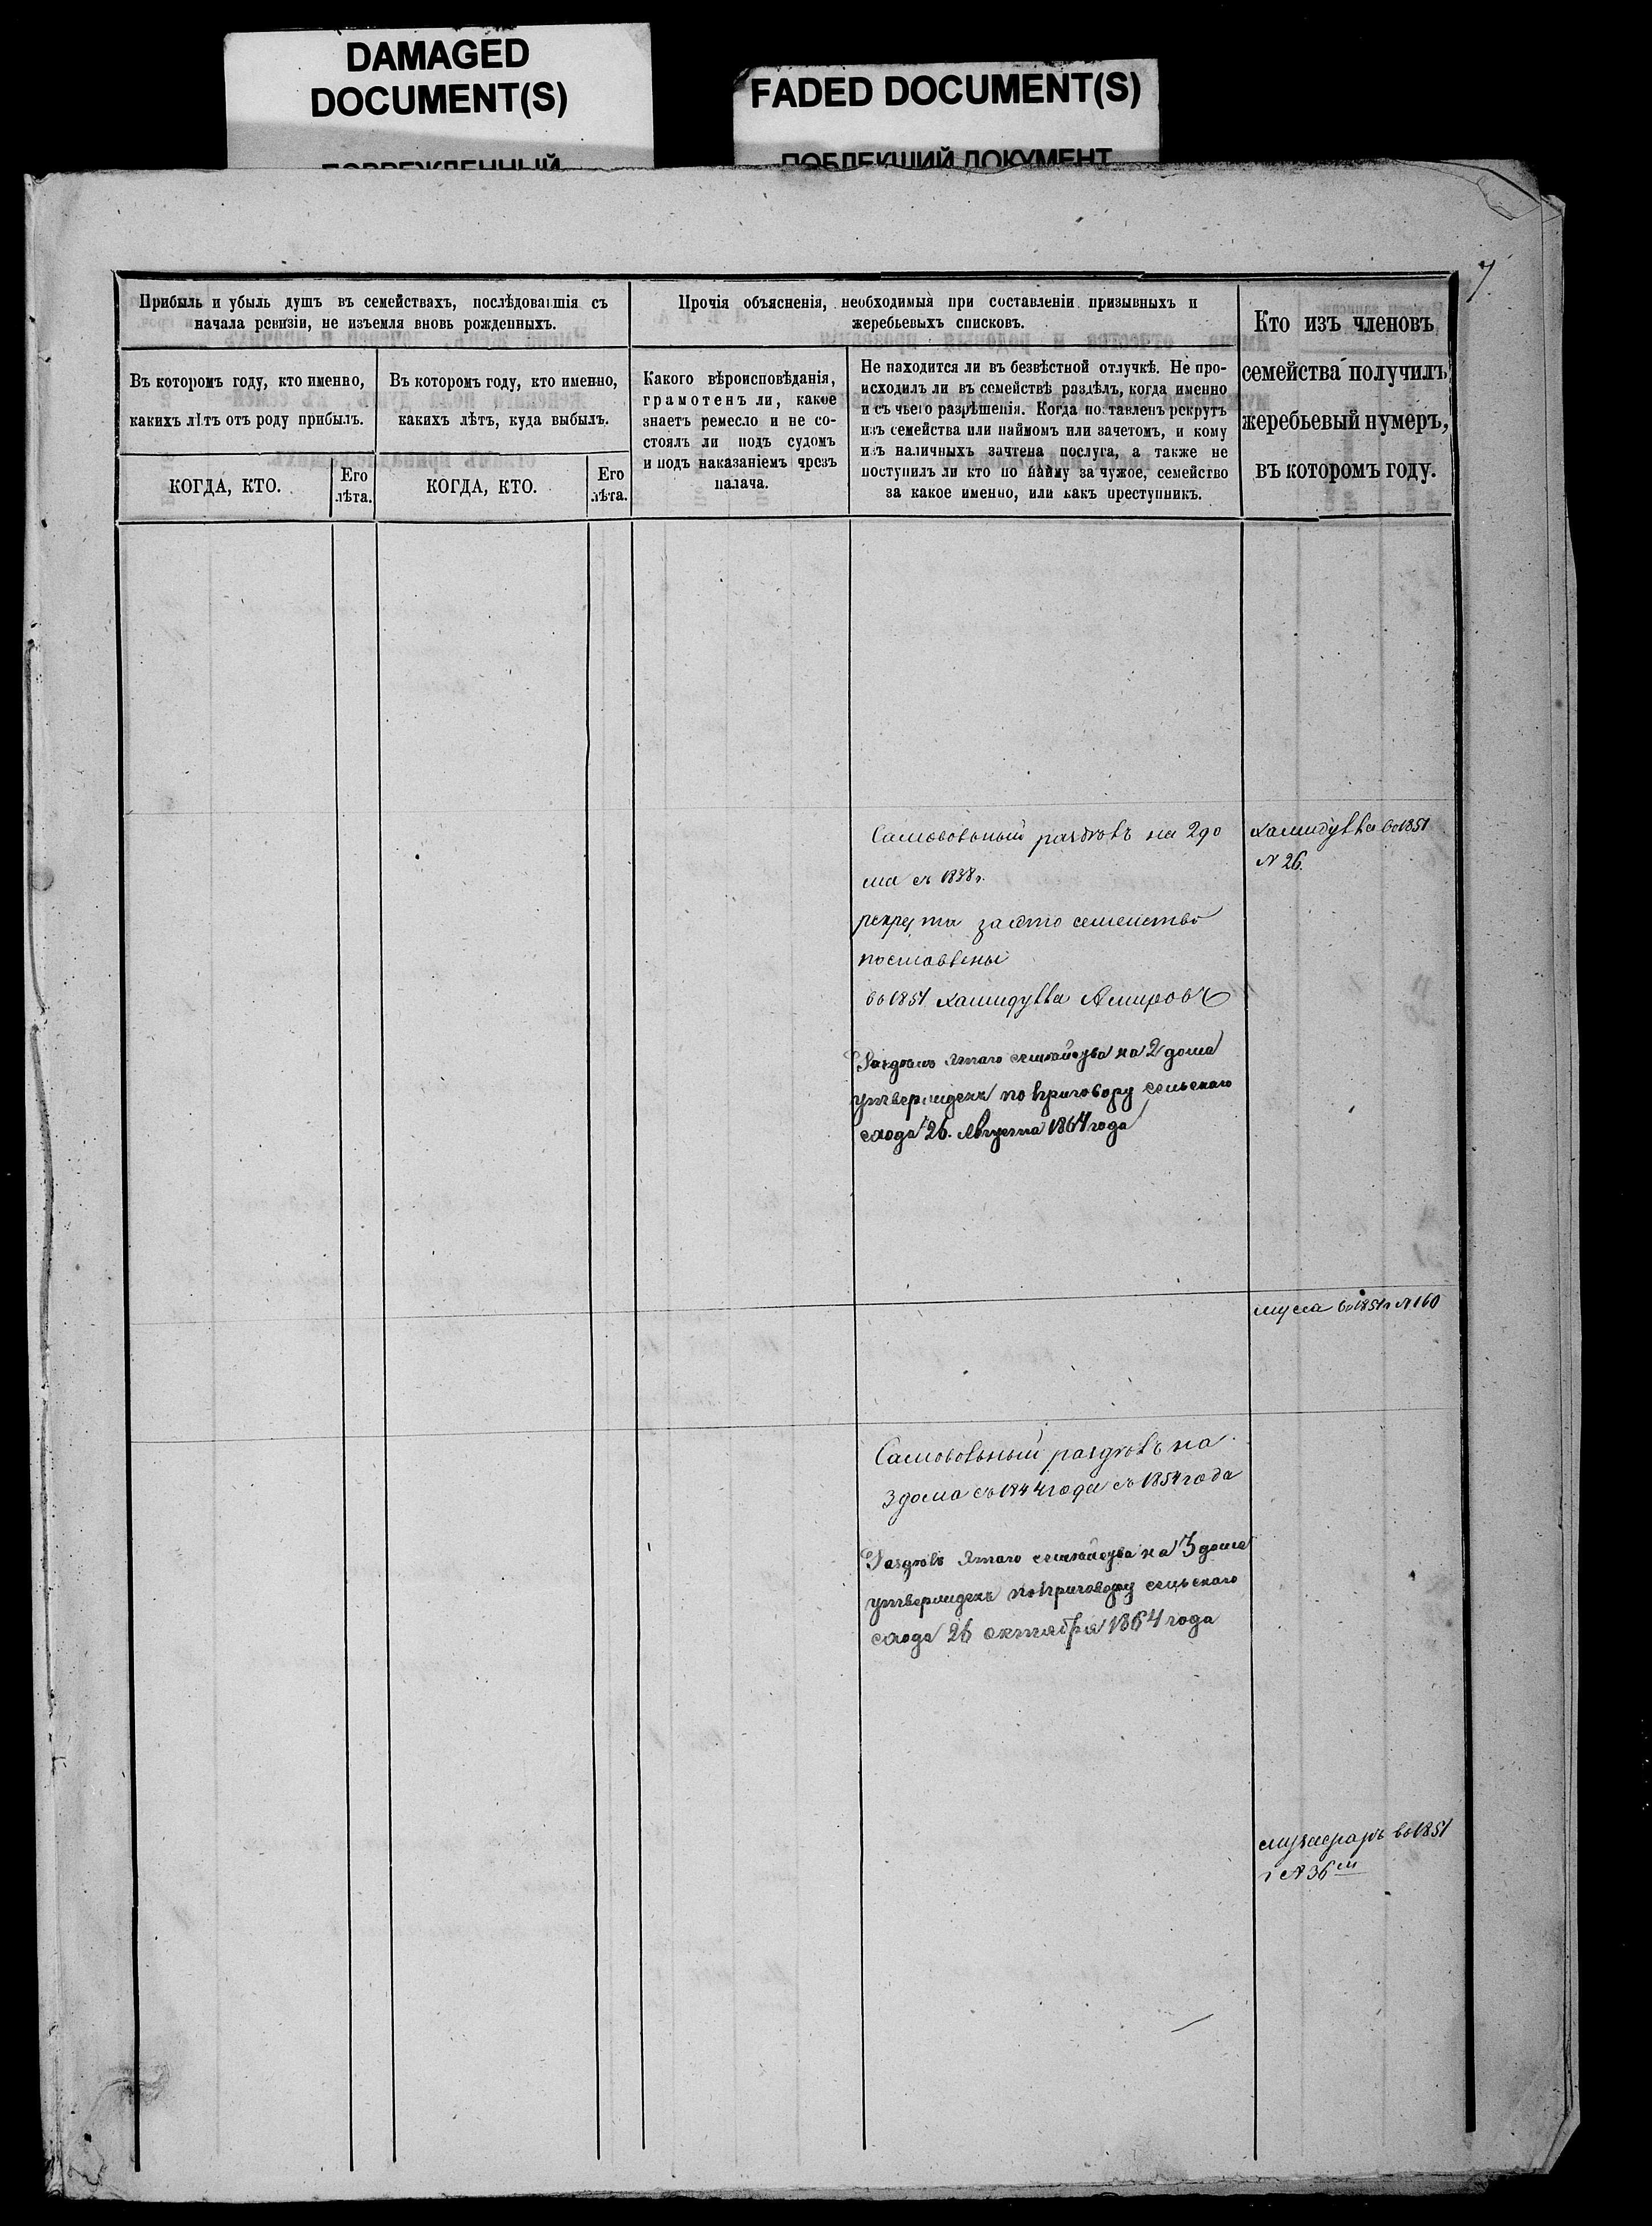 DAMAGED
DOCUMENT(S)
ПОВРЕЖДЕННЫЙ
FADED DOCUMENT(S)
ПОБЛЕКШИЙ ДОКУМЕНТ
7
Прибыль и убыль душъ въ семействахъ, послѣдовавшія съ
начала ревизіи, не изъемля вновь рожденныхъ.
Въ которомъ году, кто именно,
какихъ лѣтъ отъ роду прибылъ.
КОГДА, КТО.
Его
лѣта.
Въ которомъ году, кто именно,
какихъ лѣтъ, куда выбылъ.
КОГДА, КТО.
Его
лѣта.
Прочія объясненія, необходимыя при составленіи призывныхъ и
жеребьевыхъ списковъ.
Какого вѣроисповѣданія,
грамотенъ ли, какое
знаетъ ремесло и не со-
стоялъ ли подъ судомъ
и подъ наказаніемъ чрезъ
палача.
Не находится ли въ безвѣстной отлучкѣ. Не про-
исходилъ ли въ семействѣ раздѣлъ, когда именно
и съ чьего разрѣшенія. Когда поставленъ рекрутъ
изъ семейства или наймомъ или зачетомъ, и кому
изъ наличныхъ зачтена послуга, а также не
поступилъ ли кто по найму за чужое, семейство
за какое именно, или какъ преступникъ.
Кто изъ членовъ
семейства получилъ
жеребьевый нумеръ,
въ которомъ году.
Самовольный раздѣлъ на 2 до
ма съ 1838 г.
рекрута за это семейство
поставлены
въ 1851 Хамидулла Амировъ
Хамидулла въ 1851
N 26.
Раздѣлъ этаго семейства на 2 дома
утвержденъ по приговору сельскаго
схода 26. Августа 1864 года
Муса въ 1851 г N 160
Самовольный раздѣлъ на
3 дома съ 1844 года съ 1854 года
Раздѣлъ этаго семейства на 3 дома
утвержденъ по приговору сельскаго
схода 26 октября 1864 года
въ 1851
г N 36